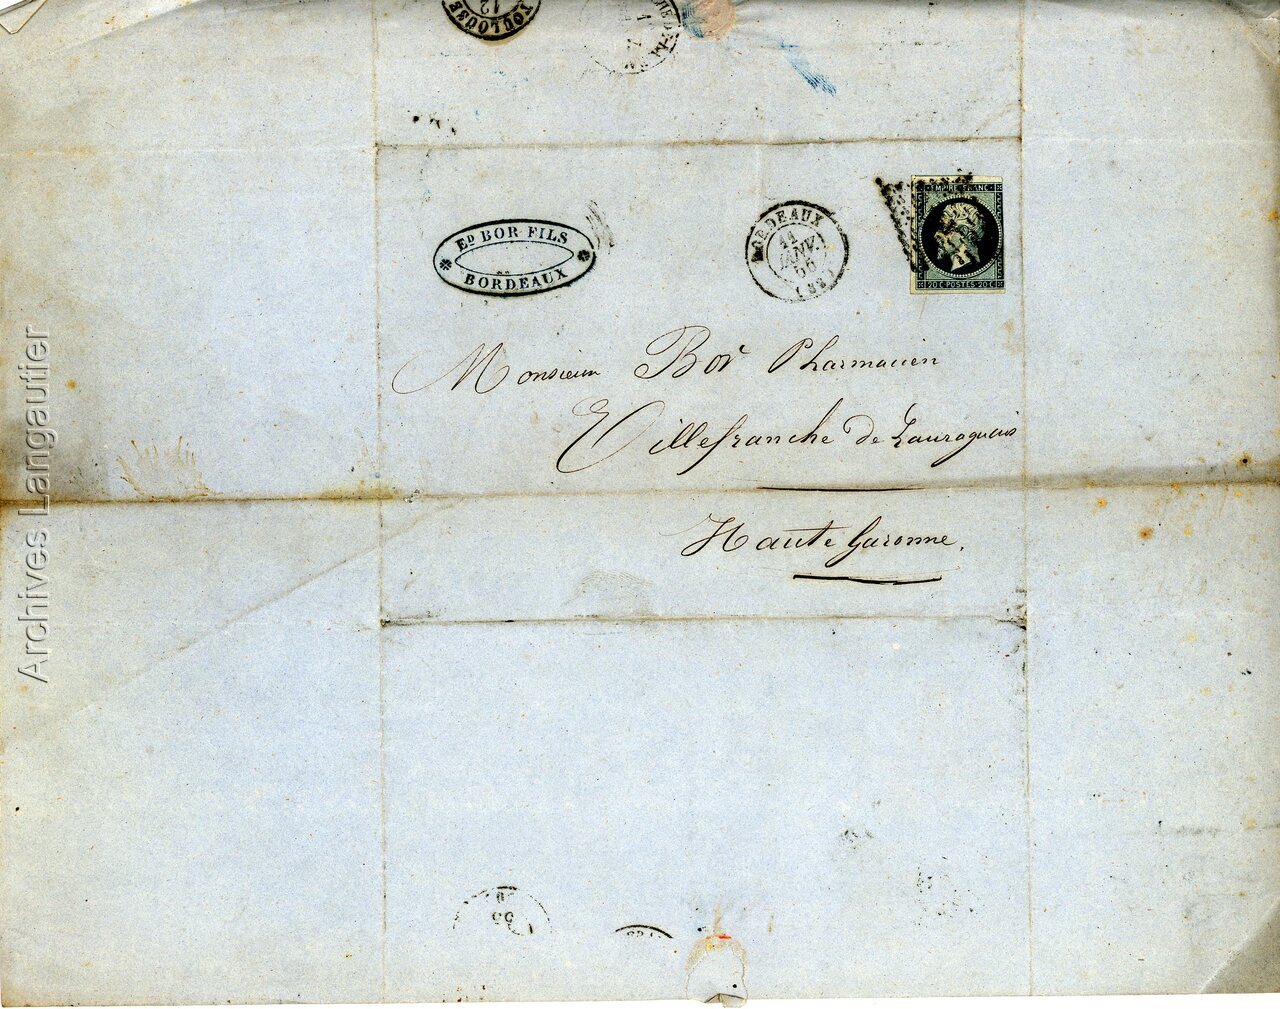 TOULOUSE
12
ED BOR FILS
BORDEAUX
BORDEAUX
11
JANV.
55
(32)
EMPIRE FRANC
20 C POSTES 20 C
Monsieur Bor Pharmacien
Villefranche de Lauraguais
Haute Garonne.
Archives Langautier